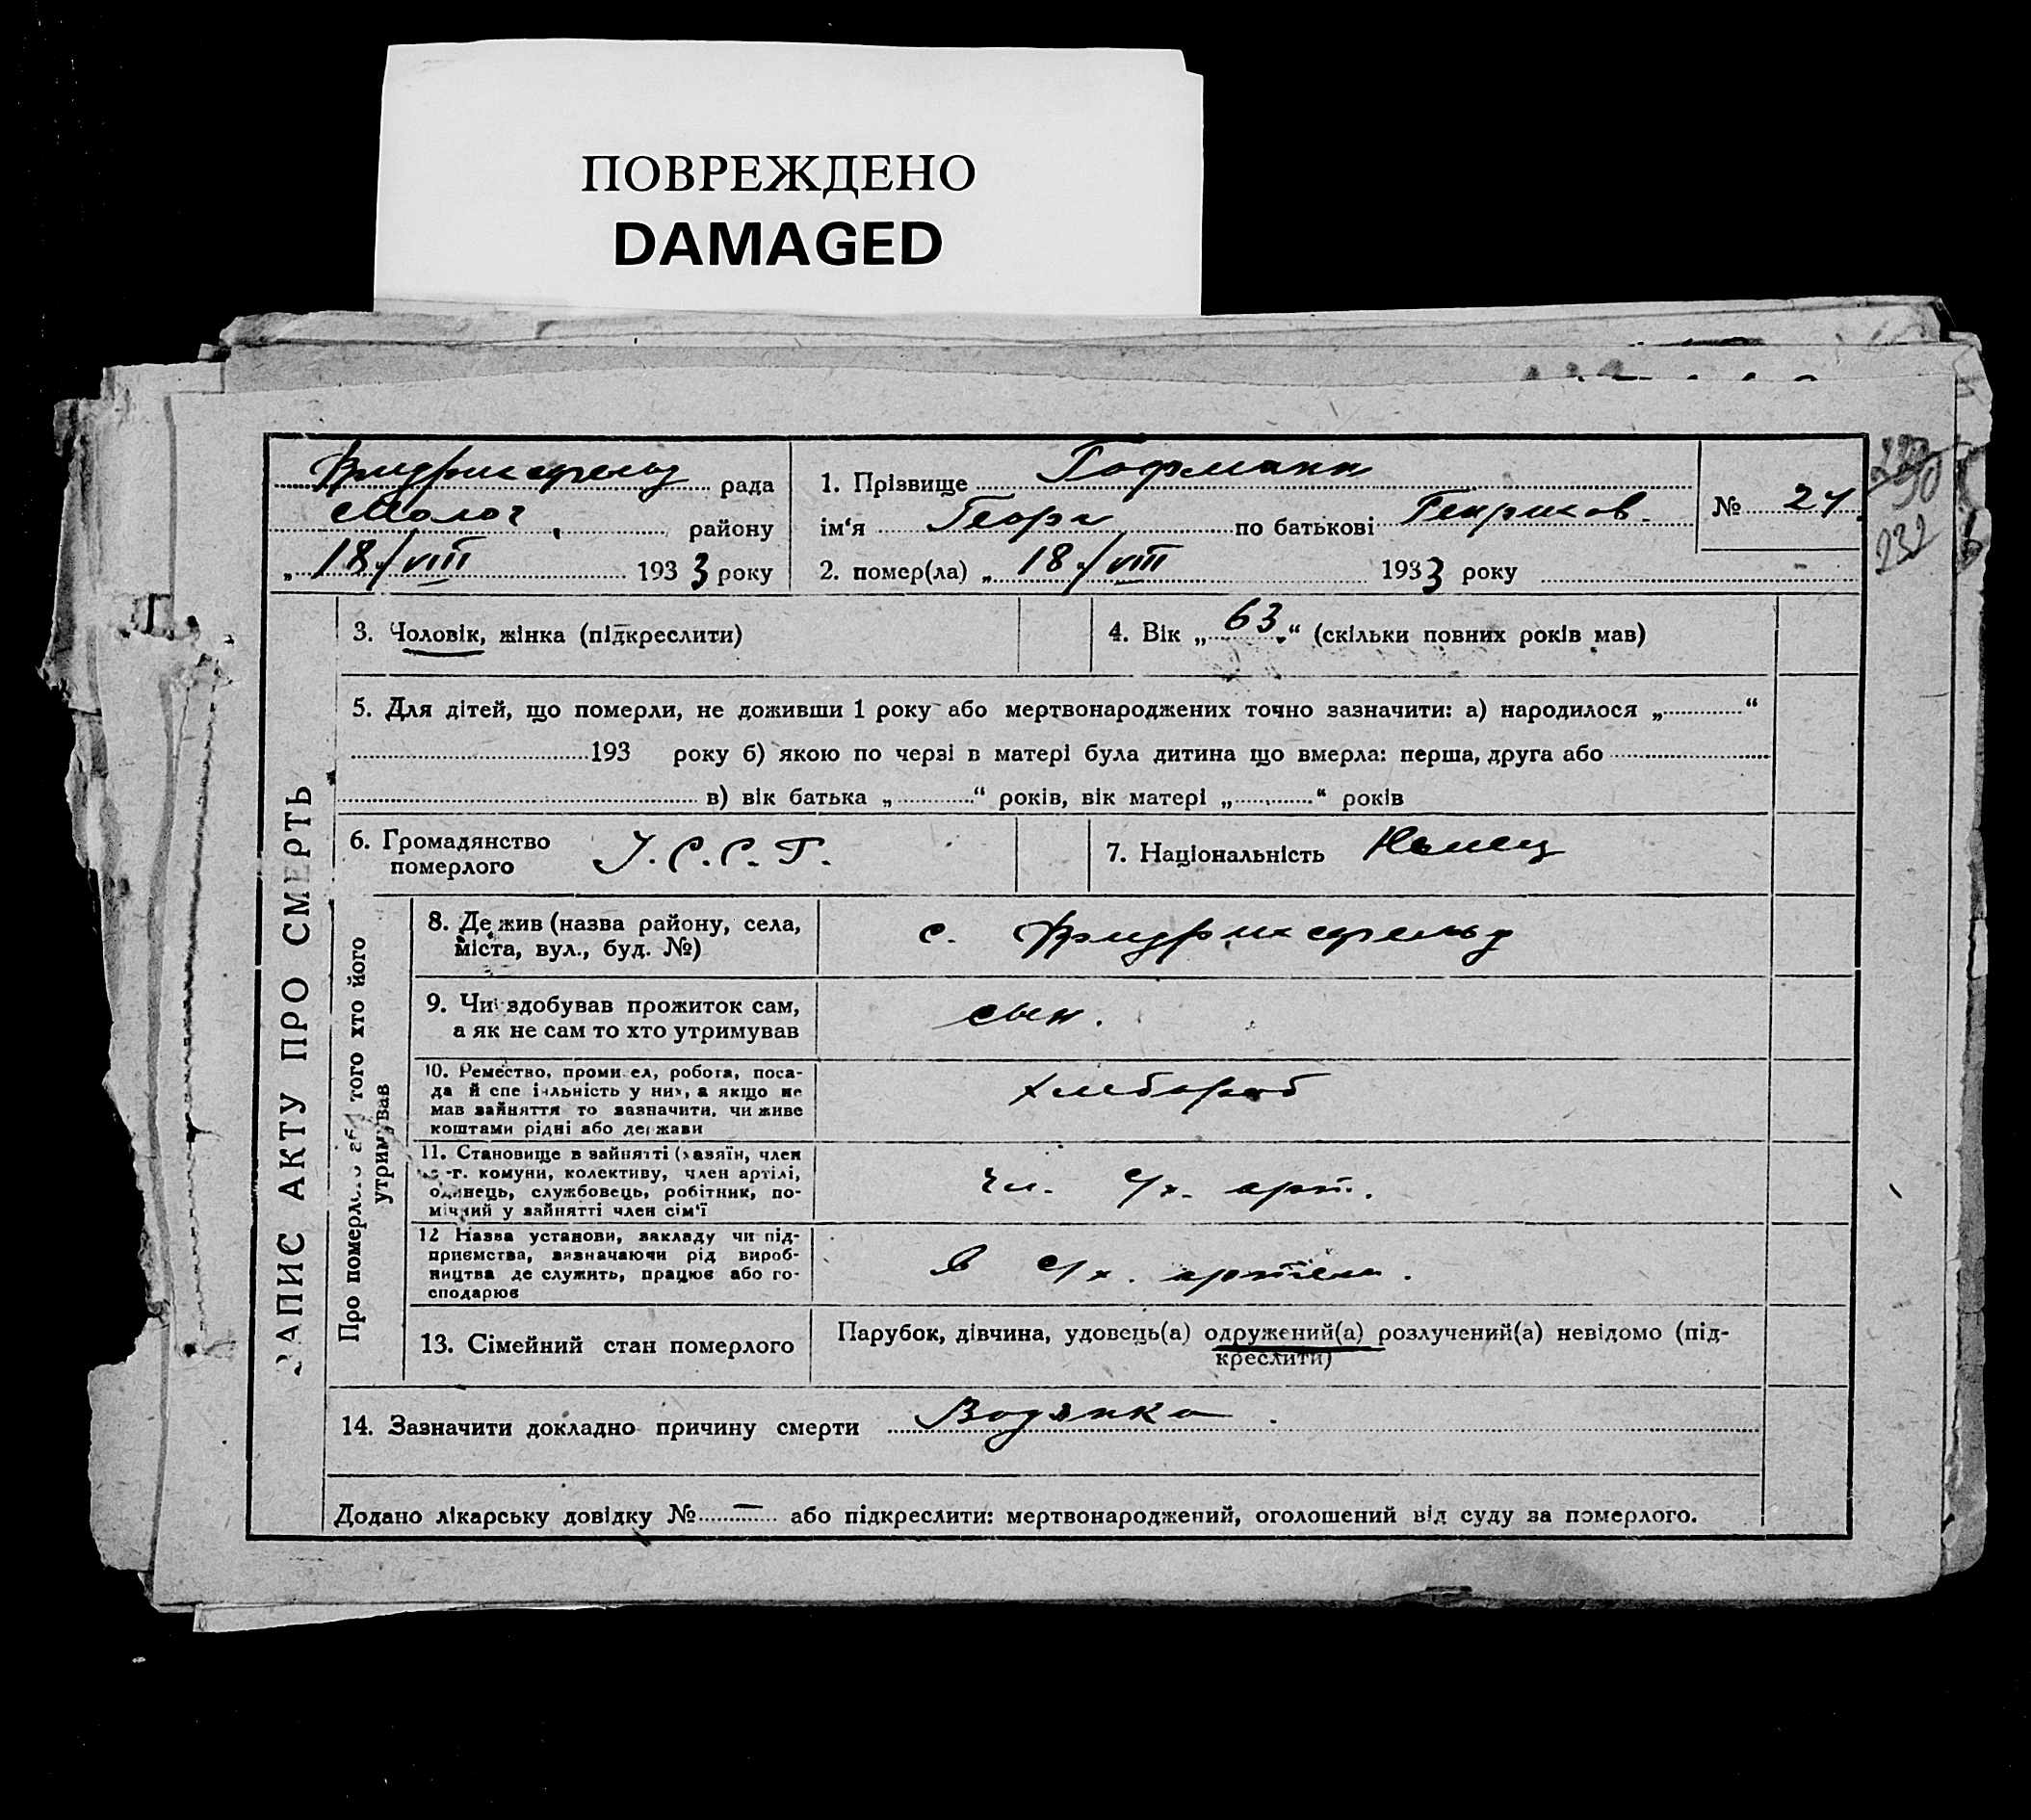 ПОВРЕЖДЕНО
DAMAGED
Фридрихсфельд рада
Молоч. району
„ 18/VIII 1933 року
1. Прізвище Гофманн
ім‘я Георг по батькові Генрихов.
2. помер(ла) „ 18/VIII 1933 року
№ 24.
232
ЗАПИС АКТУ ПРО СМЕРТЬ
3. Чоловік, жінка (підкреслити)
4. Вік „ 63 “ (скільки повних років мав)
5. Для дітей, що померли, не доживши 1 року або мертвонароджених точно зазначити: а) народилося „ “
193 року б) якою по черзі в матері була дитина що вмерла: перша, друга або
в) вік батька „ “ років, вік матері „ “ років
6. Громадянство
померлого У.С.С.Р.
7. Національність Немец
Про померлого або того хто його
утримував
8. Де жив (назва району, села,
міста, вул., буд. №)
с. Фридрихсфельд
9. Чи здобував прожиток сам,
а як не сам то хто утримував
сын.
10. Ремество, промисел, робота, поса-
да й спеціяльність у них, а якщо не
мав зайняття то зазначити, чи живе
коштами рідні або держави
хлебороб
11. Становище в зайнятті (хазяїн, член
с.-г. комуни, колективу, член артілі,
одинець, службовець, робітник, по-
мічний у зайнятті член сім‘ї
чл. с/х. арт.
12 Назва установи, закладу чи під-
приємства, зазначаючи рід вироб-
ництва де служить, працює або го-
сподарює
в с/х. артели.
13. Сімейний стан померлого
Парубок, дівчина, удовець(а) одружений(а) розлучений(а) невідомо (під-
креслити)
14. Зазначити докладно причину смерти Водянка.
Додано лікарську довідку № — або підкреслити: мертвонароджений, оголошений від суду за померлого.